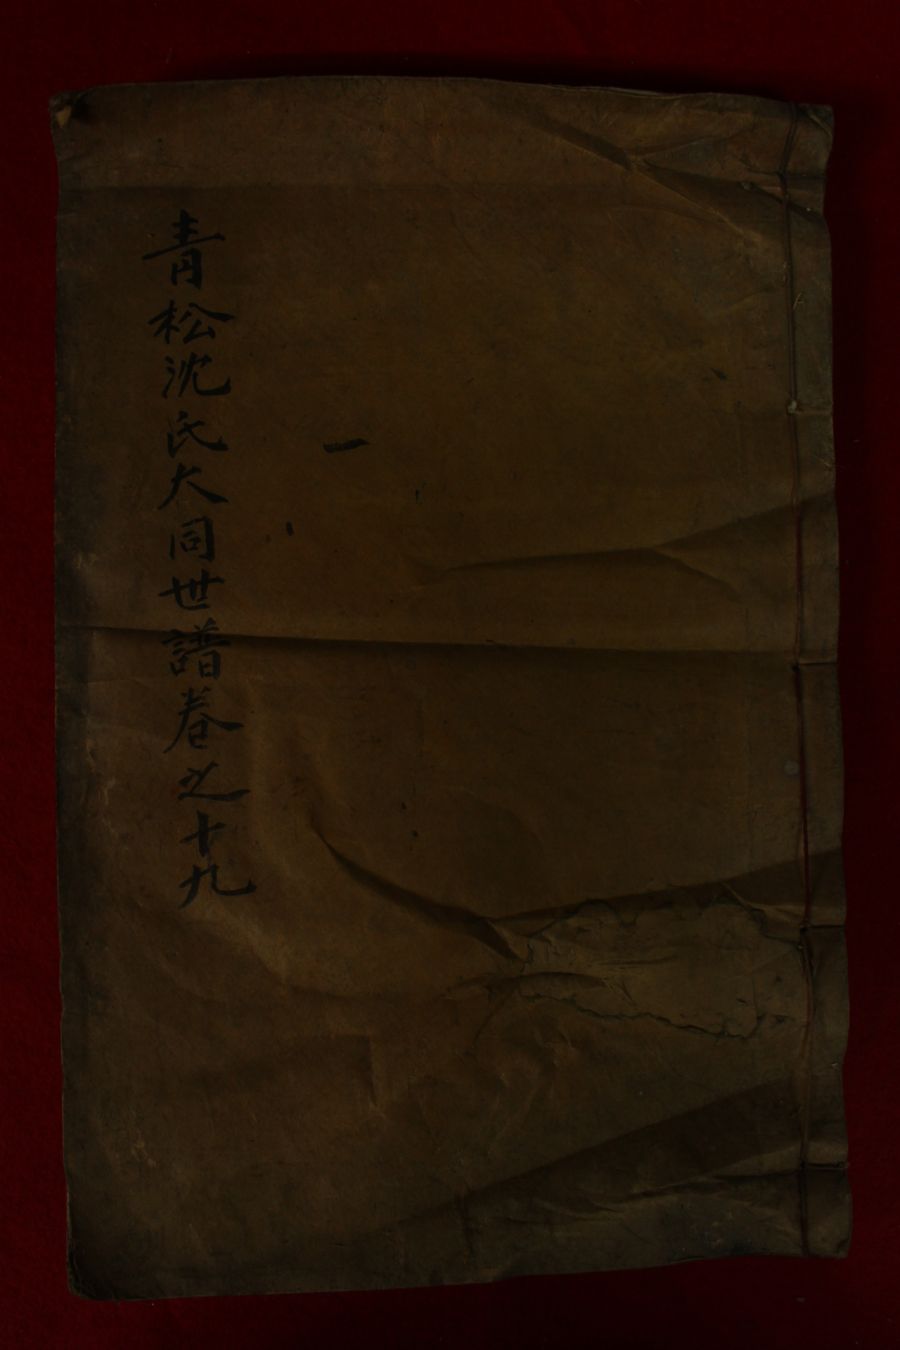 靑松沈氏大同世譜卷之十九
一